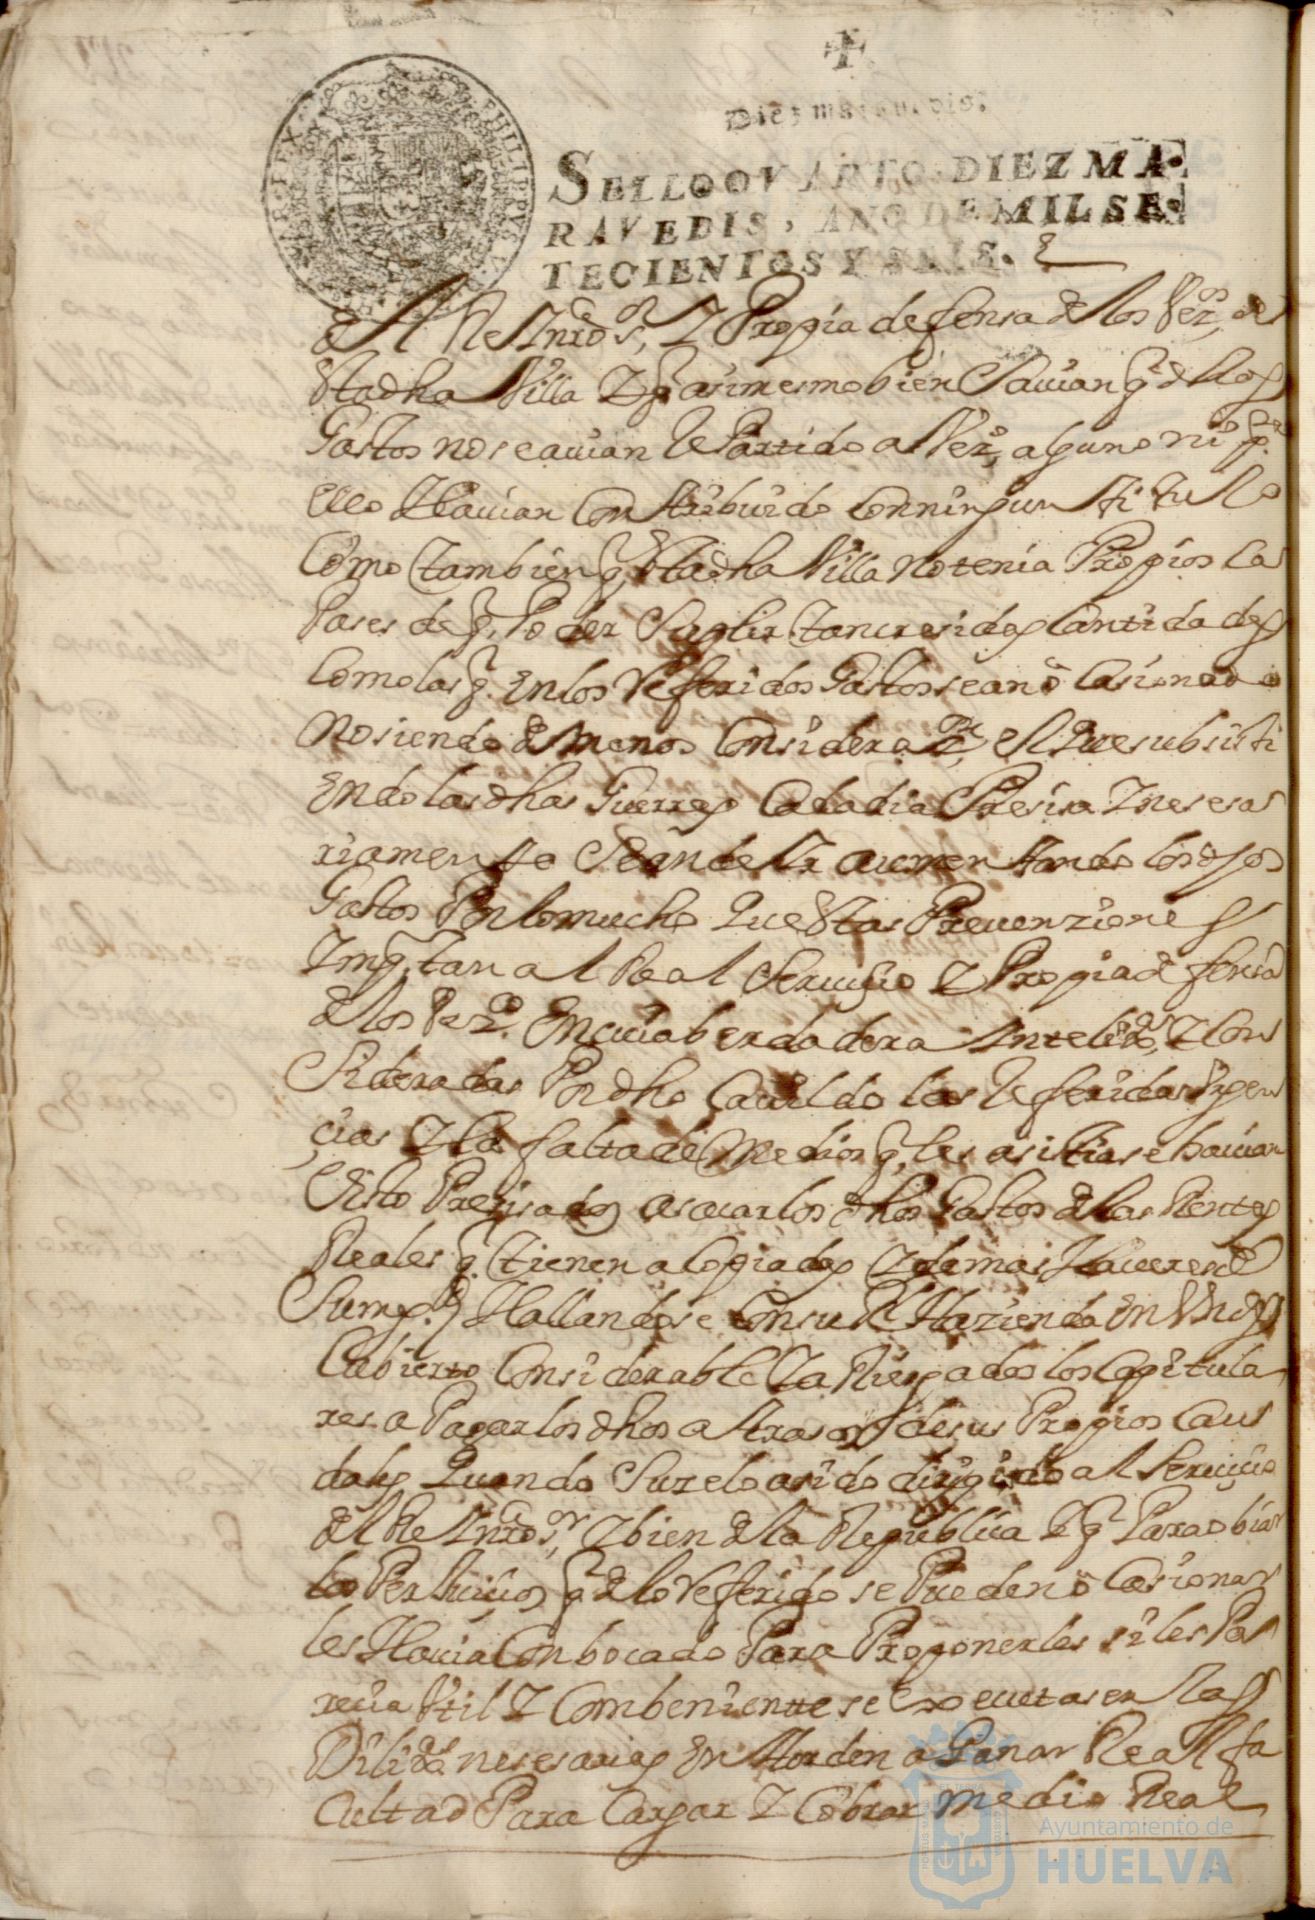 +
Diez maravedis.
PHILIPPVS V
SELLO QVARTO, DIEZ MA-
RAVEDIS, AÑO DE MIL SE-
TECIENTOS Y SEIS.
el Rl Ynteres, y Propia defensa de los Vezos, de
Sta dha Villa y q asimesmo bien Savian q de dhos
Gastos no se avian Repartido a Vezo, alguno ni pa
ello Havian Contribuido Con ningun titulo
Como tambien q Sta dha Villa no tenia Propios Ca
Pases de q Poder Suplir tan cresidas Cantidades
Como las q En los Referidos Gastos se an ocasionado
no siendo de menos Considerazon el que subsisti
Endo las dhas Guerras Cada dia Presisa y neseсa
riamente Sean de Yr aumentando los dhos
Gastos Por lo mucho que Stas Prevenziones
Ymportan al Real Servisio y Propia defensa
de los Vezos. En cuia berdadera Yntelixa, y Con
Sideradas Por dho Cavildo las Referidas Urgen
cias y la falta de Medios q les asistia se havian
Visto Presisados a sacar los dhos Gastos de las Rentas
Reales q tienen acopiadas y demas Haveres de
Su Magd Hallandose Con su Rl Hazienda En Un des
Cubierto Considerable y arriesgados los Capitula
res a Pagar los dhos atrasos de sus Propios Cau
dales quando Su zelo a sido dirigido al Servicio
del Rl Ynteres, y bien de la Republica y q Para obiar
los Perjuicios q de lo Referido se Pueden ocasionar
les Havia Conbocado Para Proponerles si les Pa
recia Util y Combeniente se executasen las
Dilixas nesesarias En Horden a Ganar Real fa
Cultad Para Cargar y Cobrar medio Real
Ayuntamiento de
HUELVA